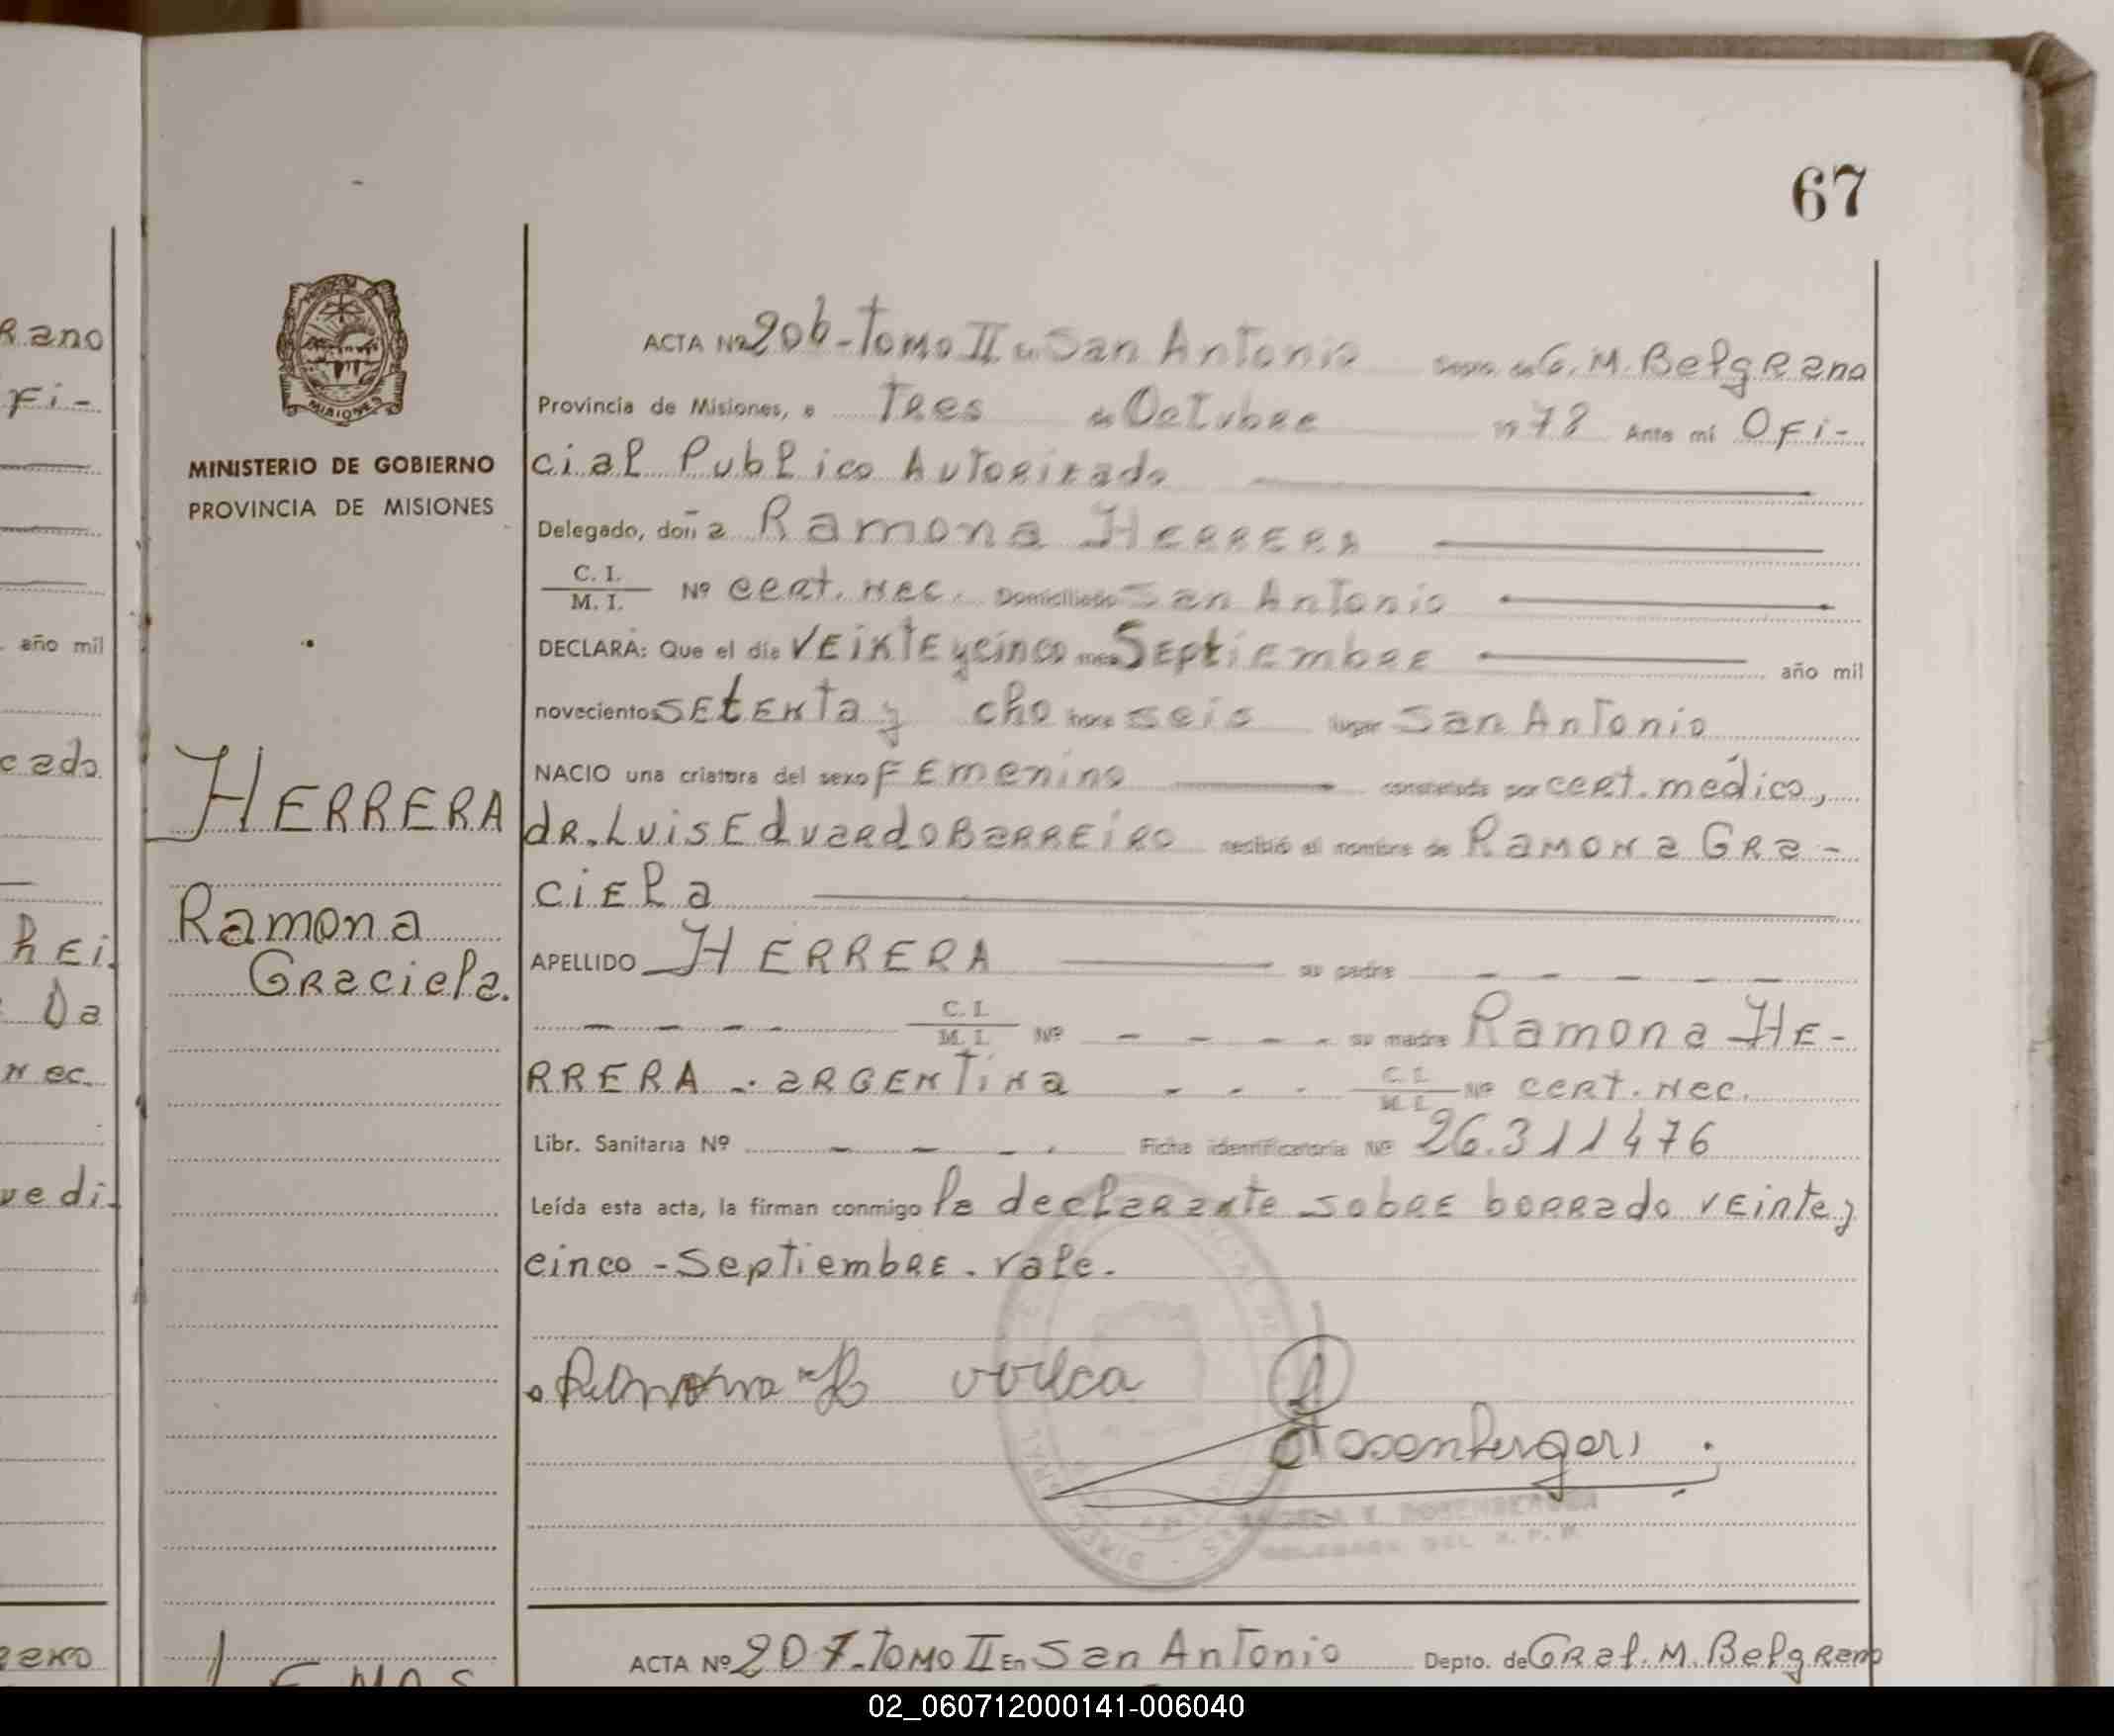 67
Rano
Fi-
año mil
cado
hEi.
Da
Nec.
vedi.
MINISTERIO DE GOBIERNO
PROVINCIA DE MISIONES
HERRERA
Ramona
Graciela.
ACTA Nº 206-Tomo II en San Antonio Depto. de G. M. BelgRano
Provincia de Misiones, a TRes de OcTubRe 1978 Ante mí OFi-
cial Publico AuToRizado
Delegado, doña Ramona HERRERA
C. I. / M. I. Nº ceRt. Nec. Domiciliado San AnTonio
DECLARA: Que el día VEiNTE y cinco mes SEptiEmbRE año mil
novecientos SEtENTa y cho hora seis lugar San AnTonio
NACIO una criatura del sexo FEmenino constatada por ceRt. médico,
dR. Luis EduaRdo BaRREiRo recibió el nombre de RamoNa GRa-
ciEla
APELLIDO HERRERA su padre - - - -
- - - - C. I. / M. I. Nº - - - - su madre Ramona HE-
RRERA -. aRGENTiNa - - - C. I. / M. I. Nº ceRT. Nec.
Libr. Sanitaria Nº - - - - Ficha identificatoria Nº 26.311476
Leída esta acta, la firman conmigo la declaRante sobRE boRRado vEinte y
cinco - SeptiembRE. vale.
Ramona H
Rosenberger
ROSENBERGER
DELEGADA DEL R. P. P.
ACTA Nº 207-Tomo II En San AnTonio Depto. de GRal. M. BelgRano
02_060712000141-006040